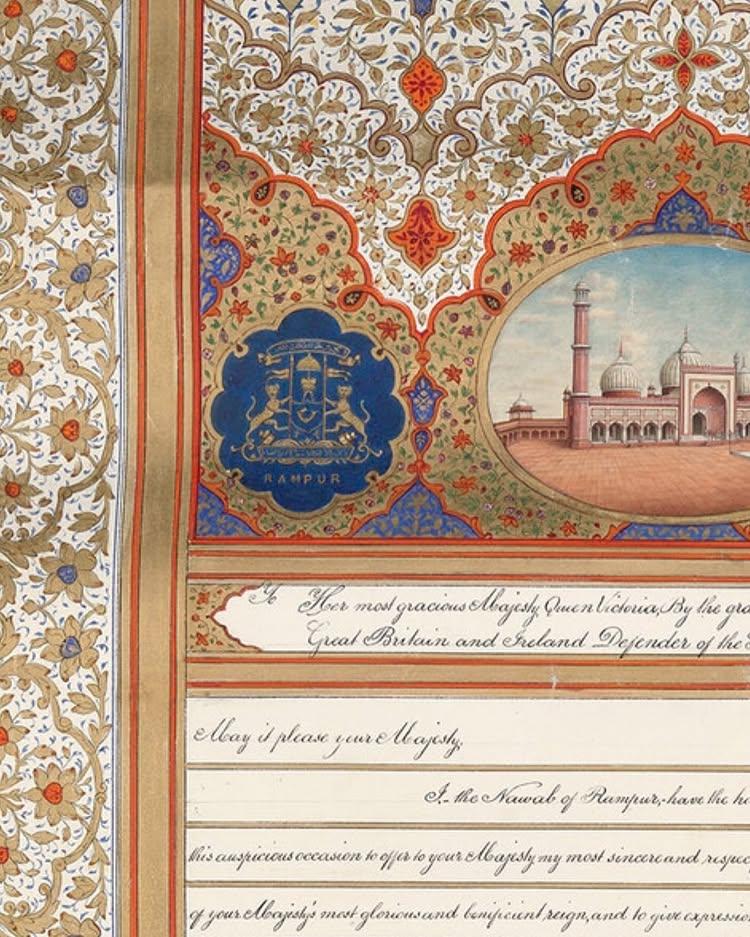 RAMPUR
To Her most gracious Majesty, Queen Victoria, By the
Great Britain and Ireland Defender of the
May it please your Majesty,
I, the Nawab of Rampur, have the
this auspicious occasion to offer to your Majesty my most sincere and
of your Majesty's most glorious and benificient reign, and to give